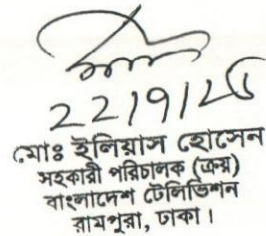 22/9/25
মোঃ ইলিয়াস হোসেন
সহকারী পরিচালক (ক্রয়)
বাংলাদেশ টেলিভিশন
রামপুরা, ঢাকা।